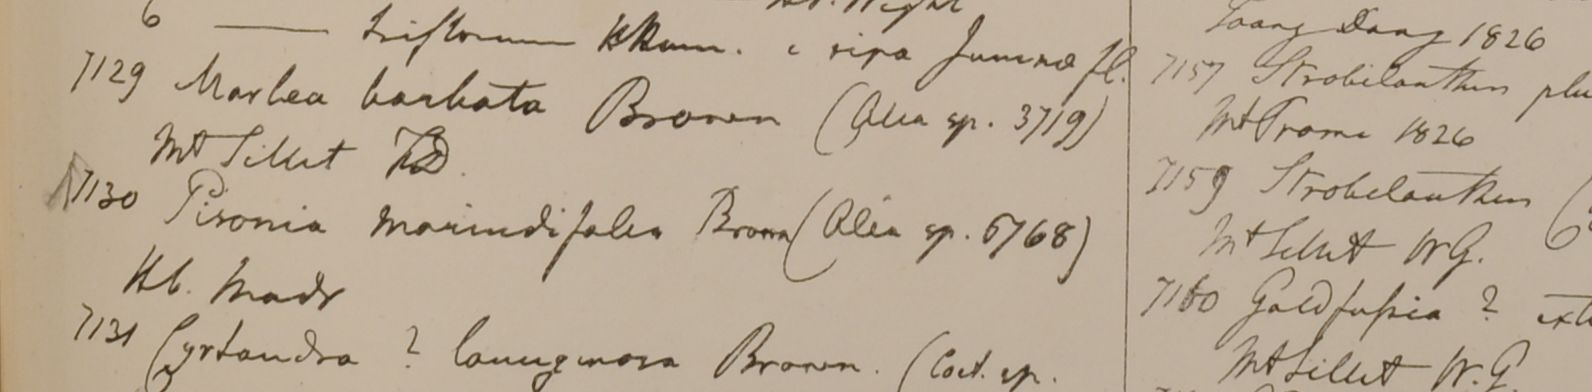 Hb. Wight
6 —— triflorum HHam. e ripa Jumnae fl.
7129 Marlea barbata Brown (Alia sp. 3719)
Mt Sillet FD.
7130 Pisonia morindifolia Brown (Alia sp. 6768)
Hb. Madr
7131 Cyrtandra ? lanuginosa Brown. (Coet. sp.
Taong Dong 1826
7157 Strobilanthus plu
Mt Prome 1826
7159 Strobilanthus (
Mt Sillet WG.
7160 Goldfussia ? ext
Mt Sillet W.G